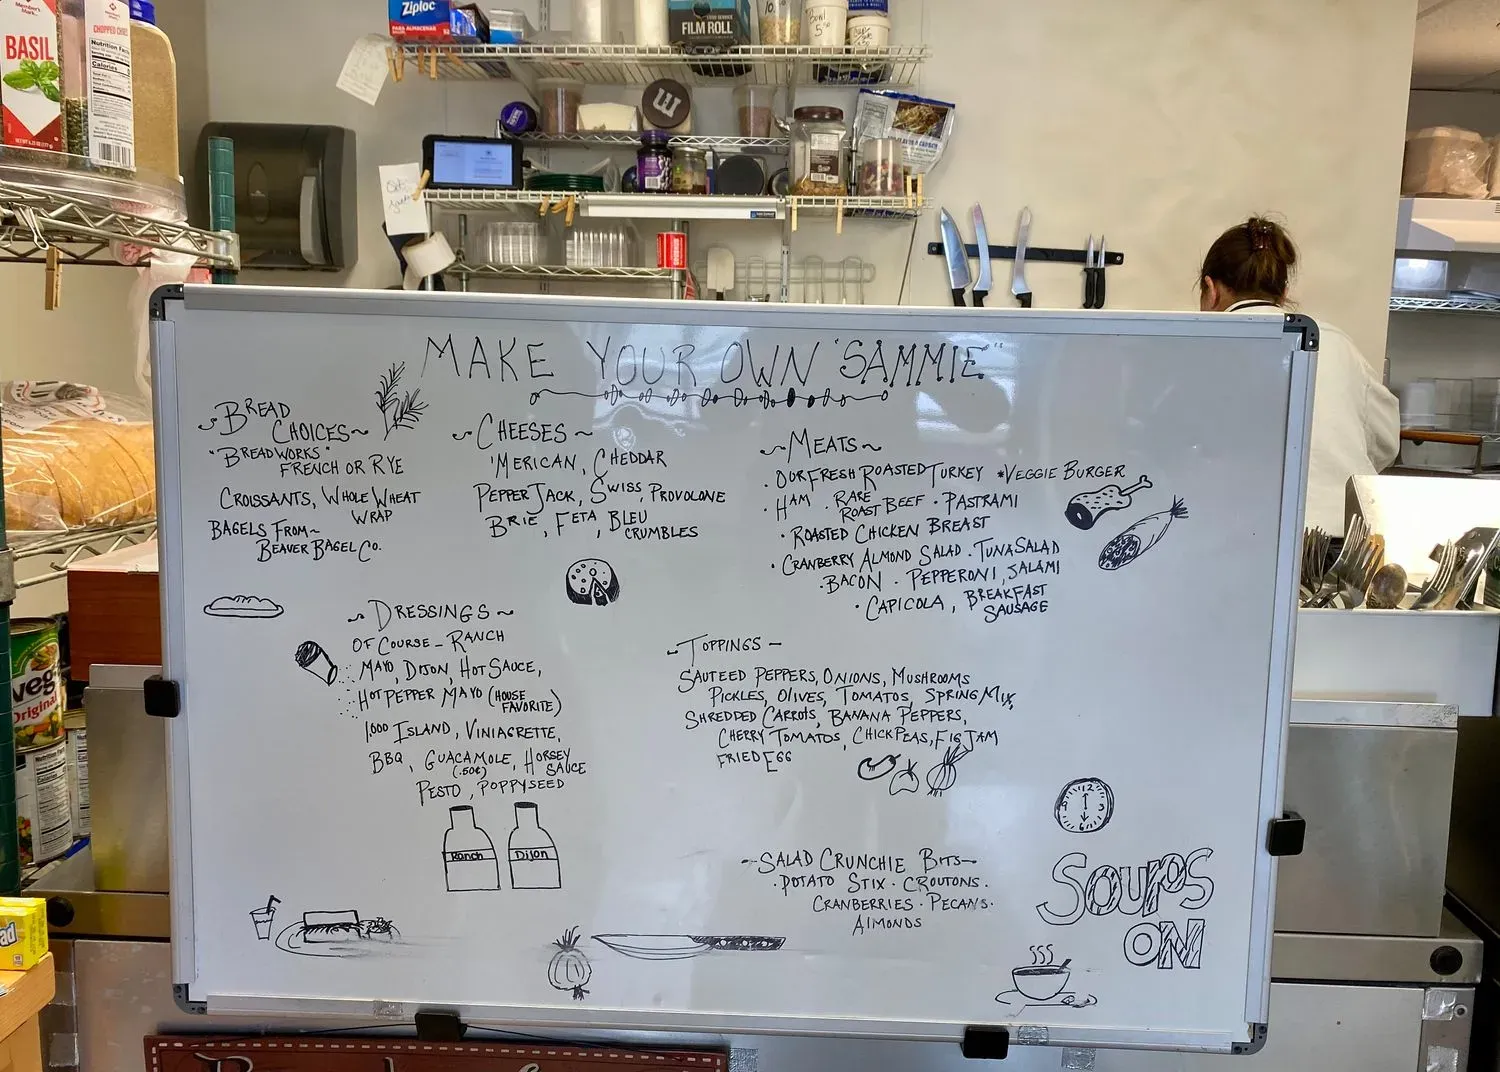 Ziploc
PARA ALMACENAR
FILM ROLL
Bowl
Member's Mark
BASIL
CHOPPED CHIVES
Nutrition Facts
Calories
MAKE YOUR OWN "SAMMIE"
~BREAD
CHOICES~
"BREADWORKS"
FRENCH OR RYE
CROISSANTS, WHOLE WHEAT
WRAP
BAGELS FROM~
BEAVER BAGEL CO.
~CHEESES~
'MERICAN, CHEDDAR
PEPPER JACK, SWISS, PROVOLONE
BRIE, FETA, BLEU
CRUMBLES
~MEATS~
· OUR FRESH ROASTED TURKEY *VEGGIE BURGER
· HAM · RARE
ROAST BEEF · PASTRAMI
· ROASTED CHICKEN BREAST
· CRANBERRY ALMOND SALAD · TUNA SALAD
· BACON · PEPPERONI, SALAMI
· CAPICOLA, BREAKFAST
SAUSAGE
~DRESSINGS~
OF COURSE - RANCH
MAYO, DIJON, HOT SAUCE,
HOT PEPPER MAYO (HOUSE
FAVORITE)
1,000 ISLAND, VINIAGRETTE,
BBQ, GUACAMOLE, HORSEY
(.50¢) SAUCE
PESTO, POPPYSEED
Ranch
Dijon
~TOPPINGS~
SAUTEED PEPPERS, ONIONS, MUSHROOMS
PICKLES, OLIVES, TOMATOS, SPRING MIX,
SHREDDED CARROTS, BANANA PEPPERS,
CHERRY TOMATOS, CHICKPEAS, FIG JAM
FRIED EGG
12
3
6
9
~SALAD CRUNCHIE BITS~
· POTATO STIX · CROUTONS ·
CRANBERRIES · PECANS ·
ALMONDS
SOUPS
ON
Veg
Original